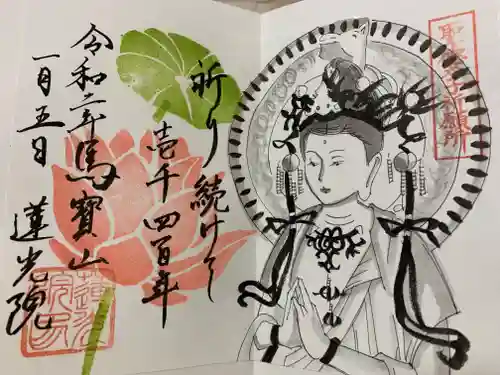 祈り続けて
壱千四百年
令和二年
一月五日
馬寶山
蓮光院
蓮光院印